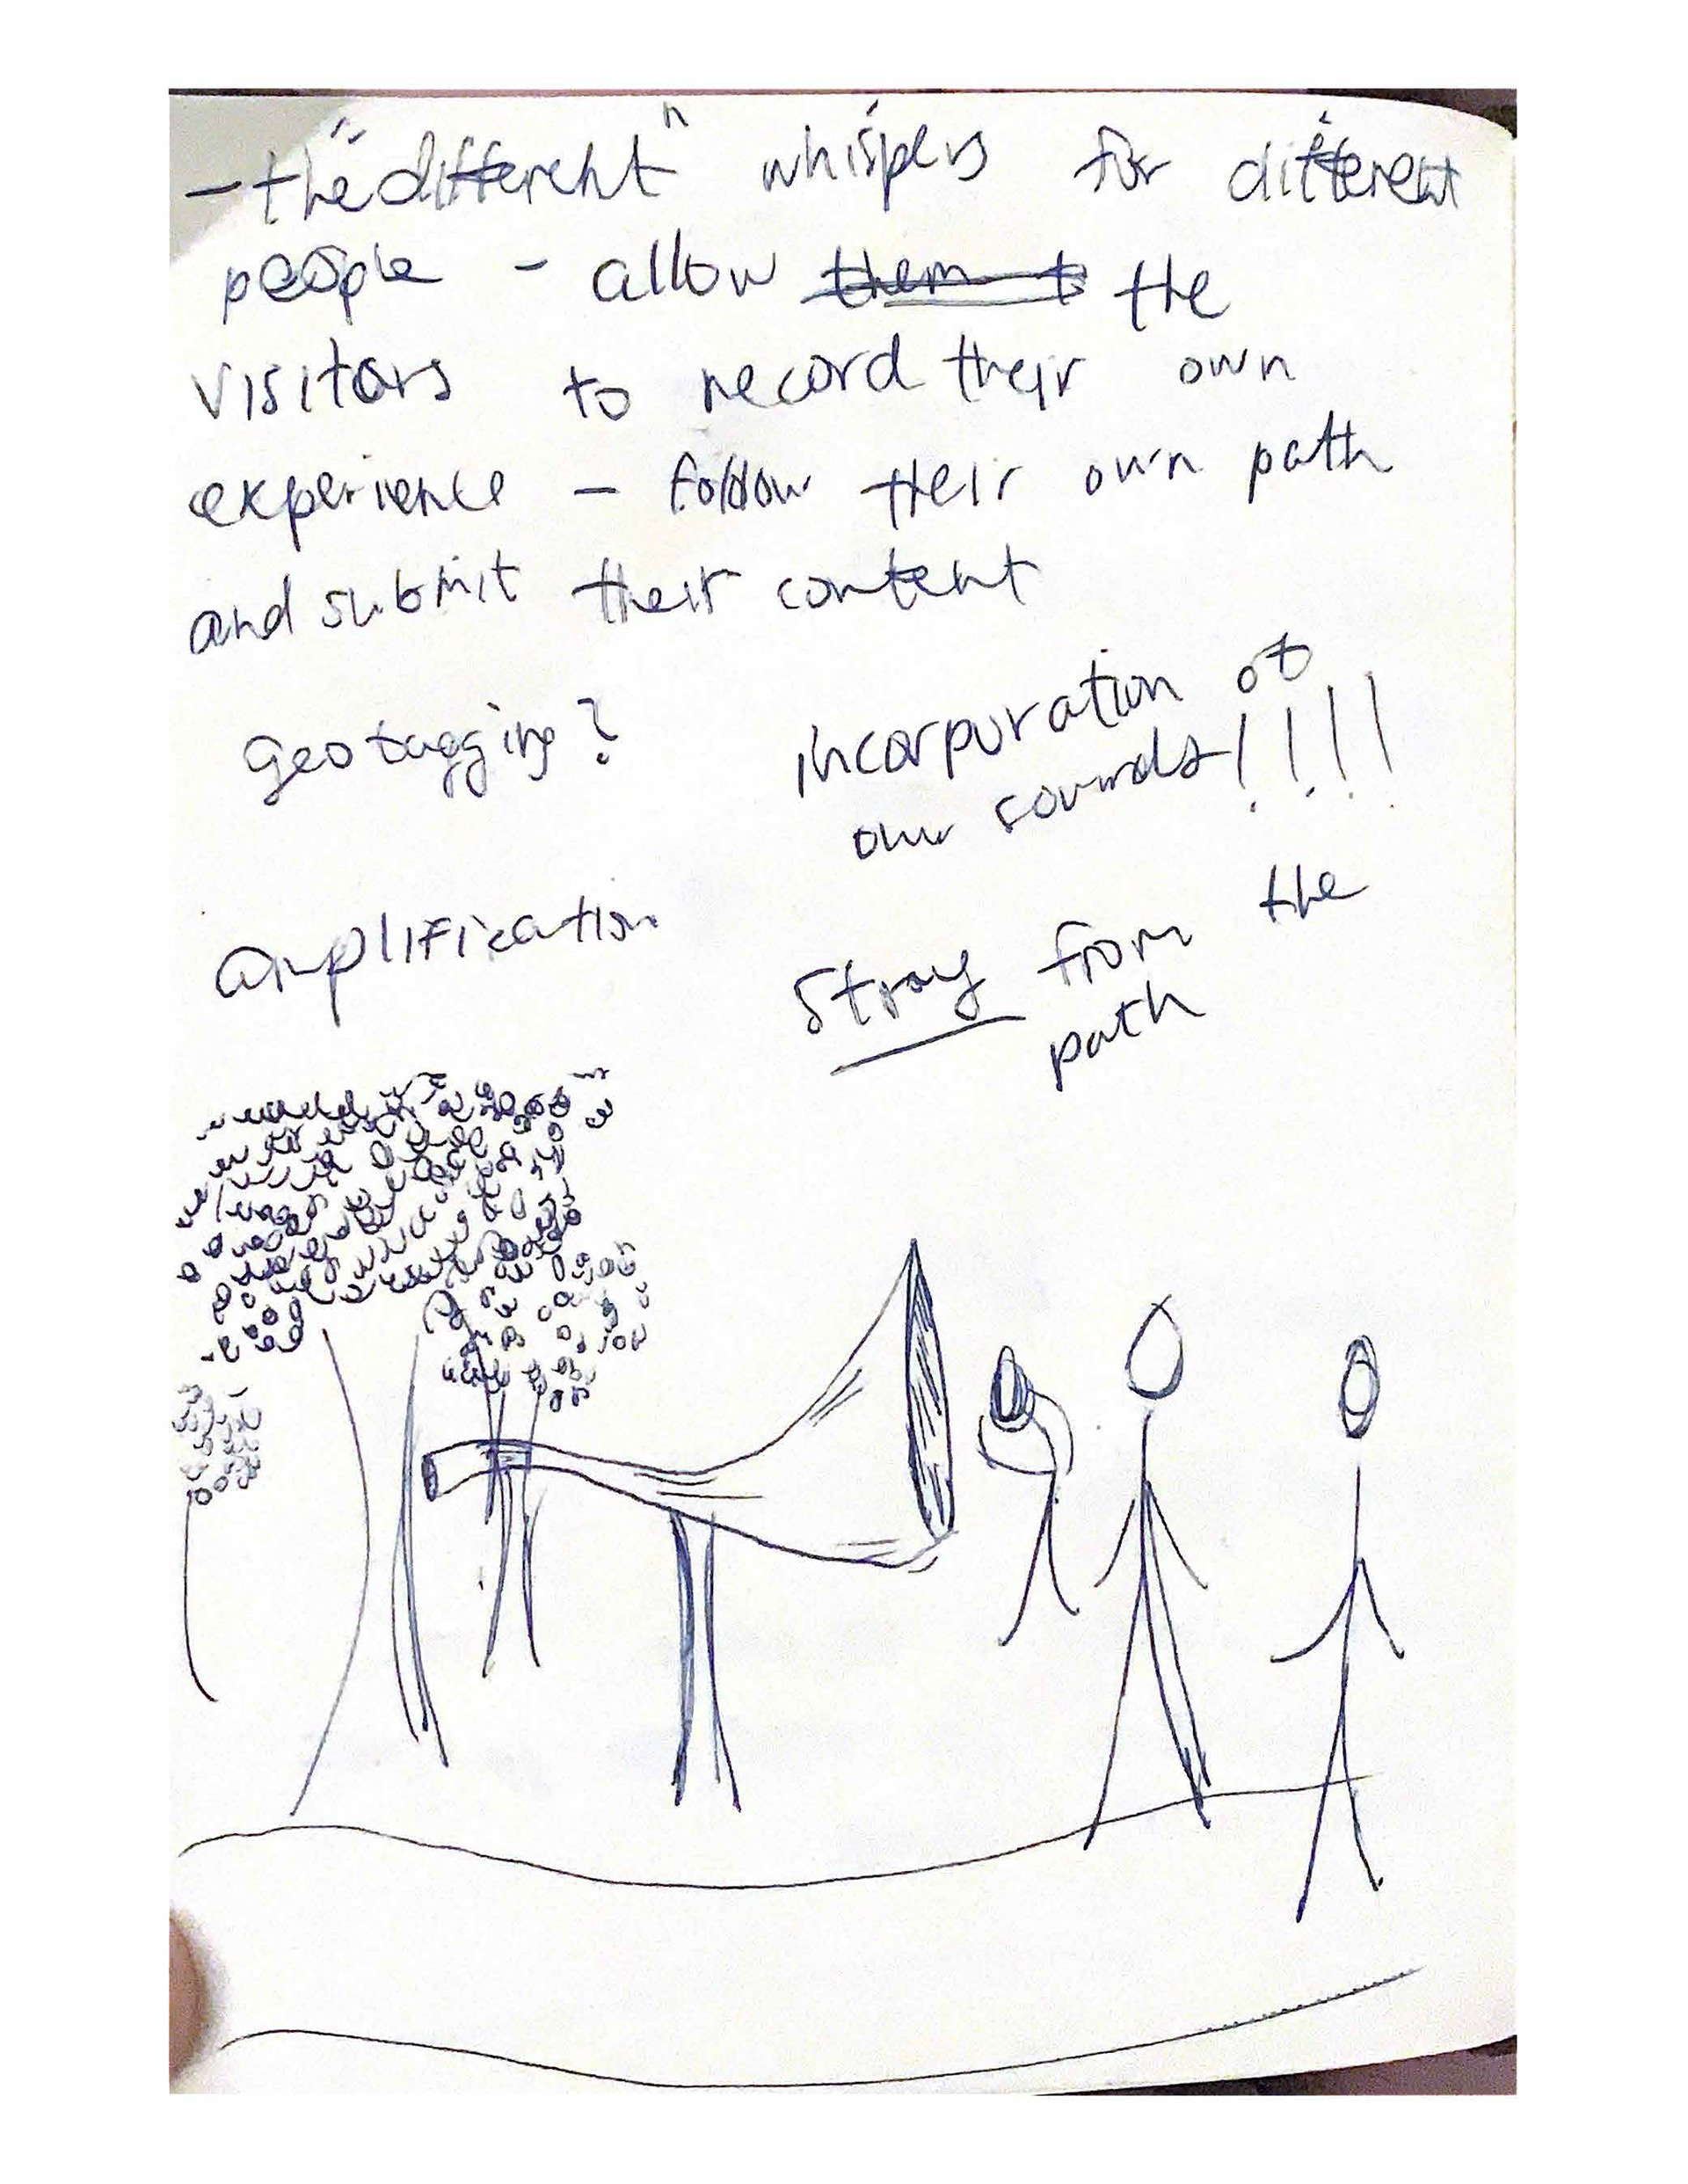 - the "different" whispers for different
people - allow them t the
visitors to record their own
experience - follow their own path
and submit their content
Geotagging?
incorporation of
our sounds!!!!
amplification
Stray from the
path